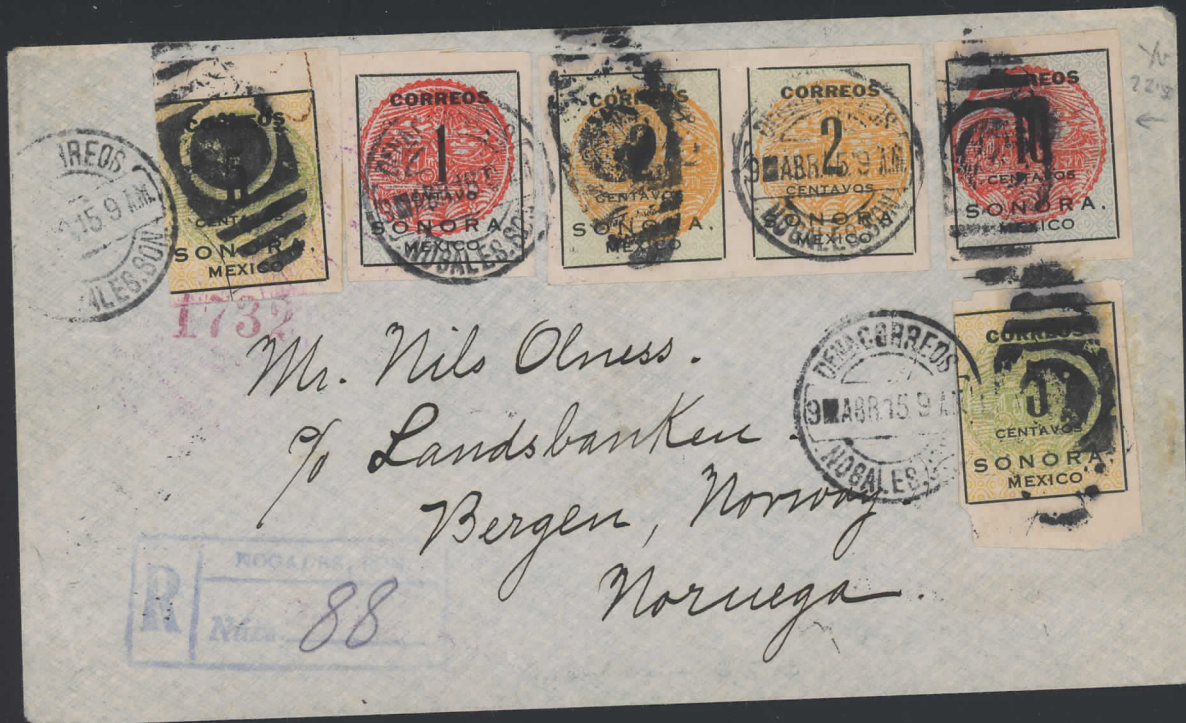 CORREOS
SONORA.
MEXICO
CORREOS
1
CENTAVO
SONORA.
MEXICO
CORREOS
2
CENTAVOS
SONORA.
MEXICO
CORREOS
2
CENTAVOS
SONORA.
MEXICO
CENTAVOS
SONORA.
MEXICO
CORREOS
CENTAVOS
SONORA.
MEXICO
15 9 A.M.
9 ABR.15 9 A.M.
NOGALES.SON.
CORREOS
9 ABR.15 9 A.M.
NOGALES
1732
Mr. Nils Olness.
c/o Landsbanken.
Bergen, Norway.
Noruega.
R
NOGALES, SON.
Núm. 88